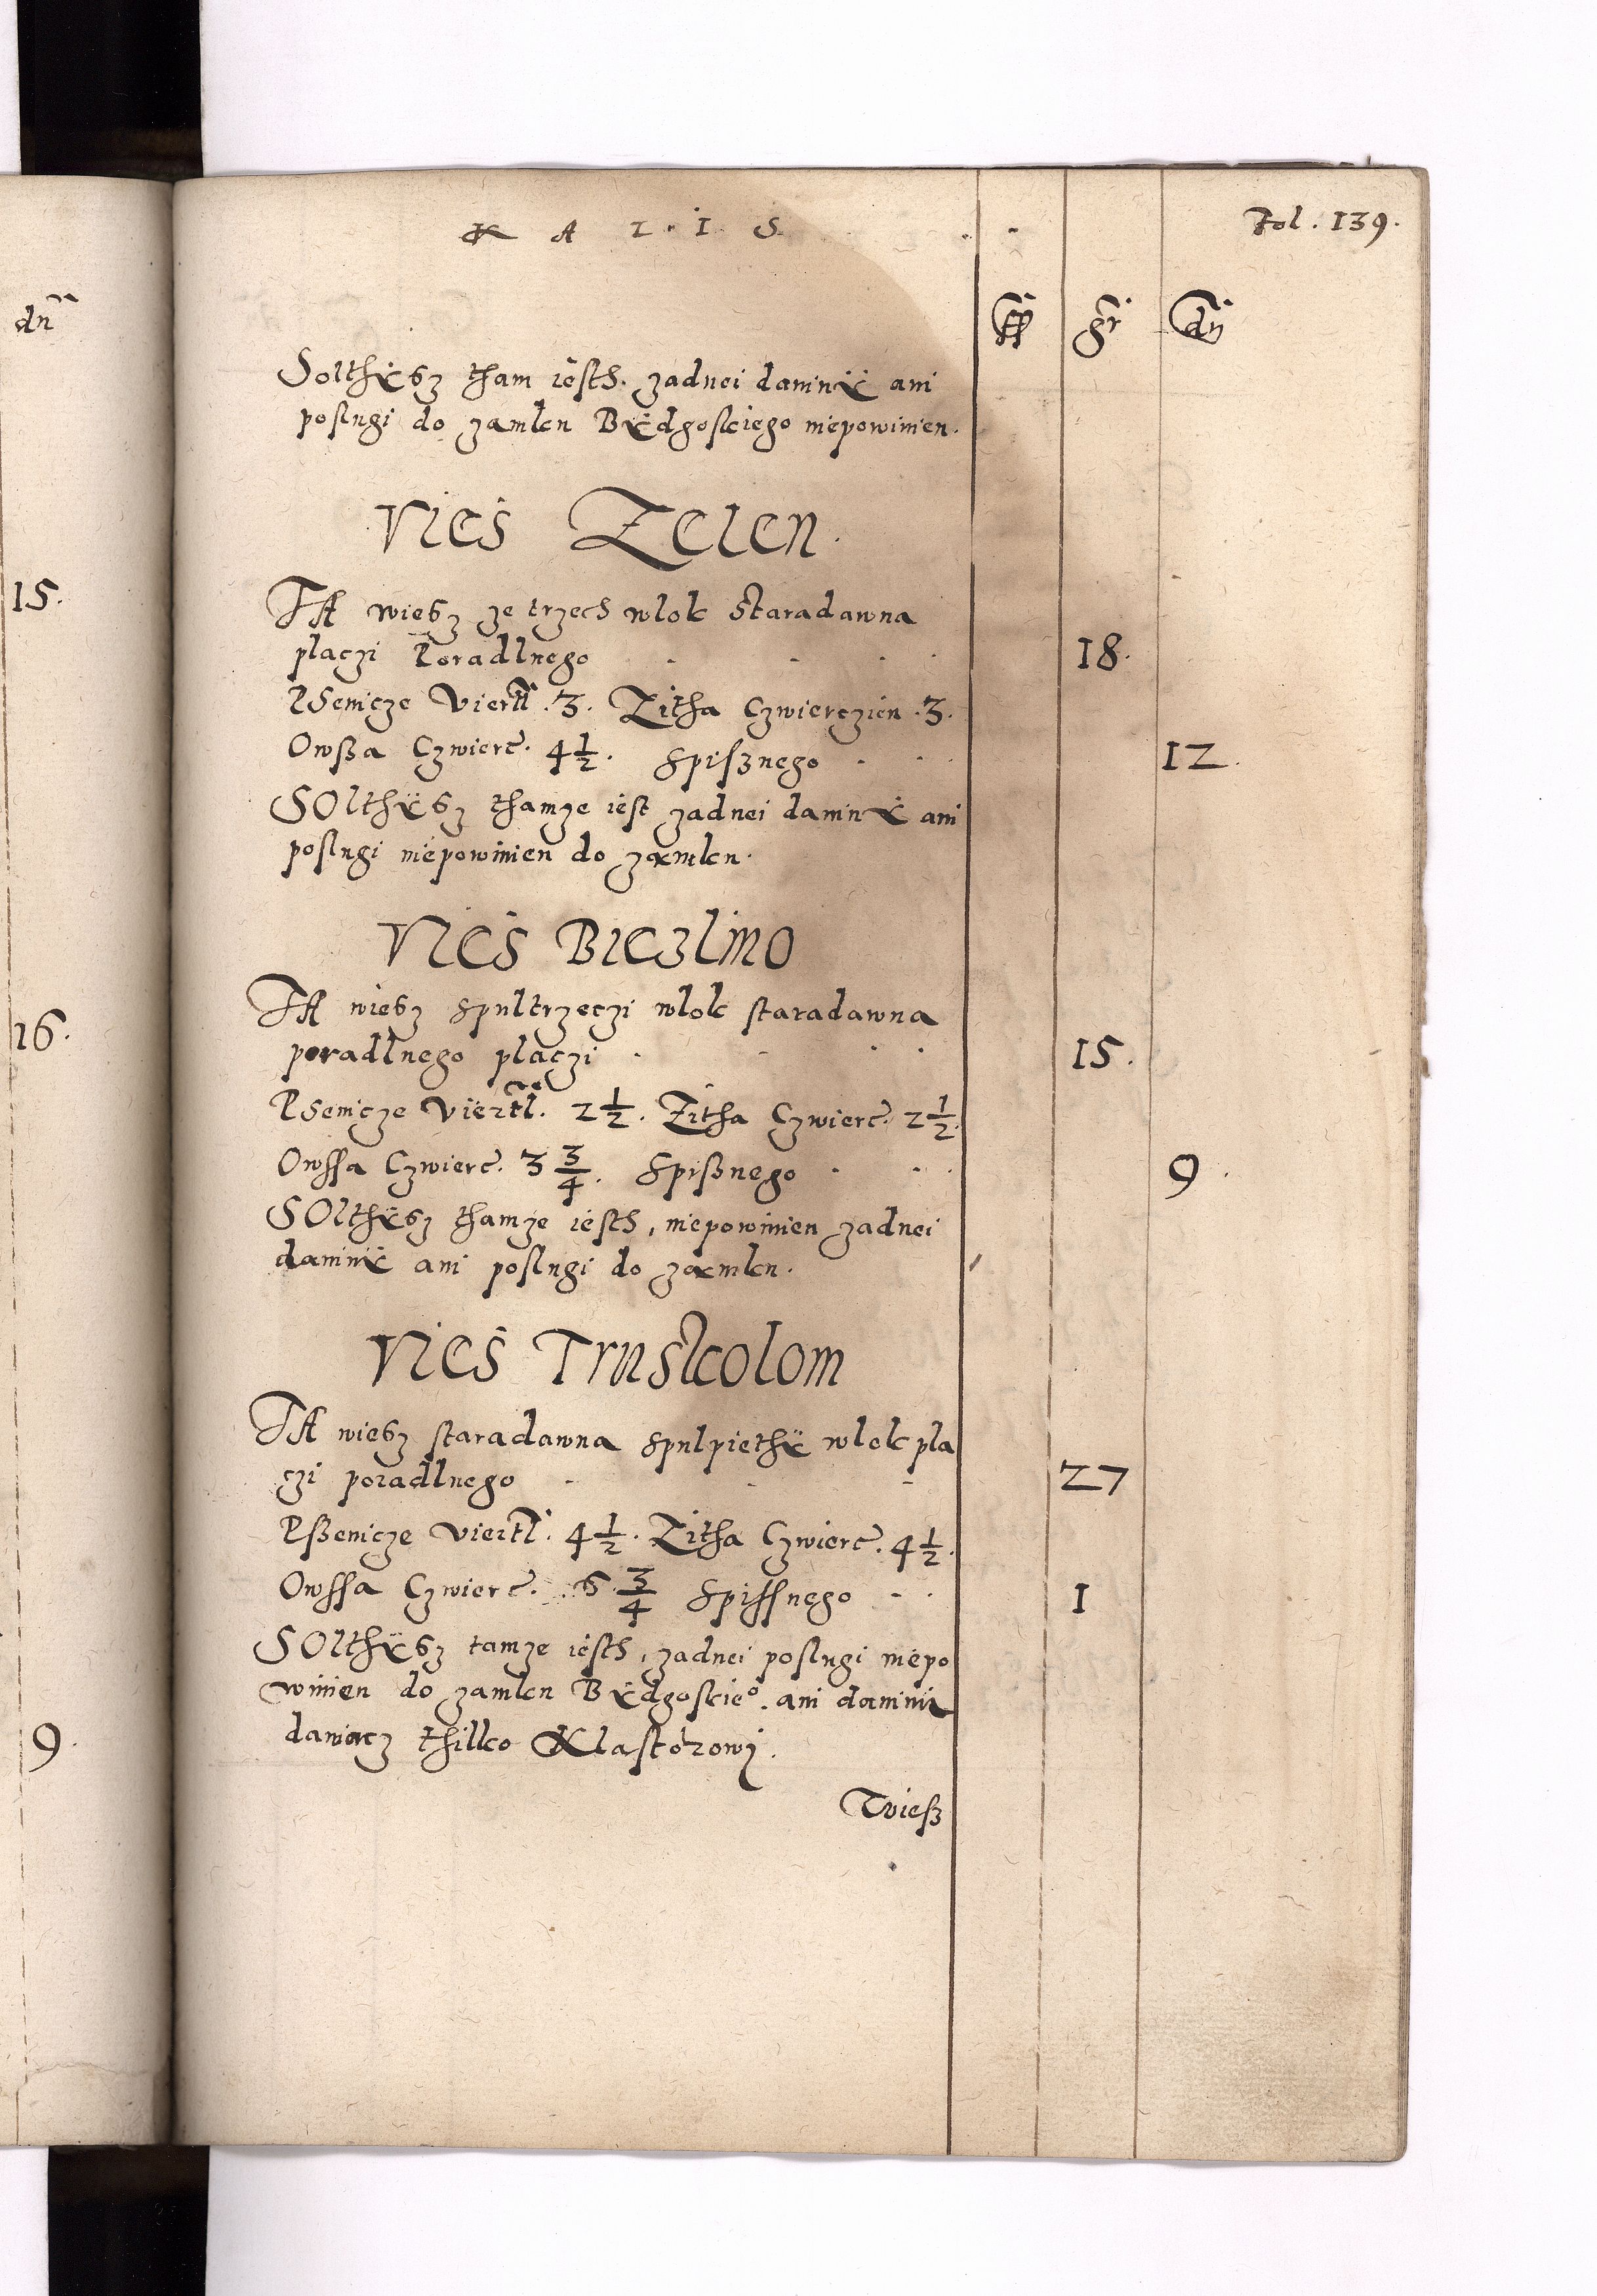 K A L I S
Fol. 139.
ff gr dn
Solthÿsz tham iesth. zadnei daninÿ ani
poslugi do zamku Bÿdgosciego niepowinien.
Vies Zelen.
TA wiesz ze trzech wlok Staradawna
placzi Poradlnego 18.
Psenicze Viertl. 3. Zitha Czwierczien. 3.
Owsza Czwierc. 4 1/2. Spisznego 12.
SOlthÿsz thamze iest zadnei daninÿ ani
poslugi niepowinien do zamku.
Vies Bieslino
TA wiesz spultrzeczi wlok staradawna
poradlnego placzi 15.
Psenicze Viertl. 2 1/2. Zitha Czwierc. 2 1/2.
Owssa Czwierc. 3 3/4. Spisznego 9.
SOlthÿsz thamze iesth, niepowinien zadnei
daninÿ ani poslugi do zamku.
Vies Truskolom
TA wiesz staradawna spulpiethÿ wlok pla
czi poradlnego 27
Pszenicze Viertl. 4 1/2. Zitha Czwierc. 4 1/2.
Owssa Czwierc. 6 3/4 Spissnego 1
SOlthÿsz tamze iesth, zadnei poslugi niepo
winien do zamku Bÿdgoscieº. ani daninii
dawacz thilko Klastorowi.
Wiesz
dn
15.
16.
9.